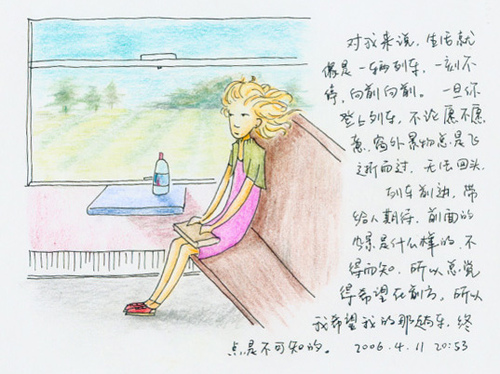 对我来说，生活就
像是一辆列车，一刻不
停，向前向前。一旦你
登上列车，不论愿不愿
意，窗外景物总是飞
逝而过，无法回头。
列车前进，带
给人期待，前面的
风景是什么样的，不
得而知，所以总觉
得希望在前方，所以
我希望我的那趟车，终
点是不可知的。 2006.4.11 20:53